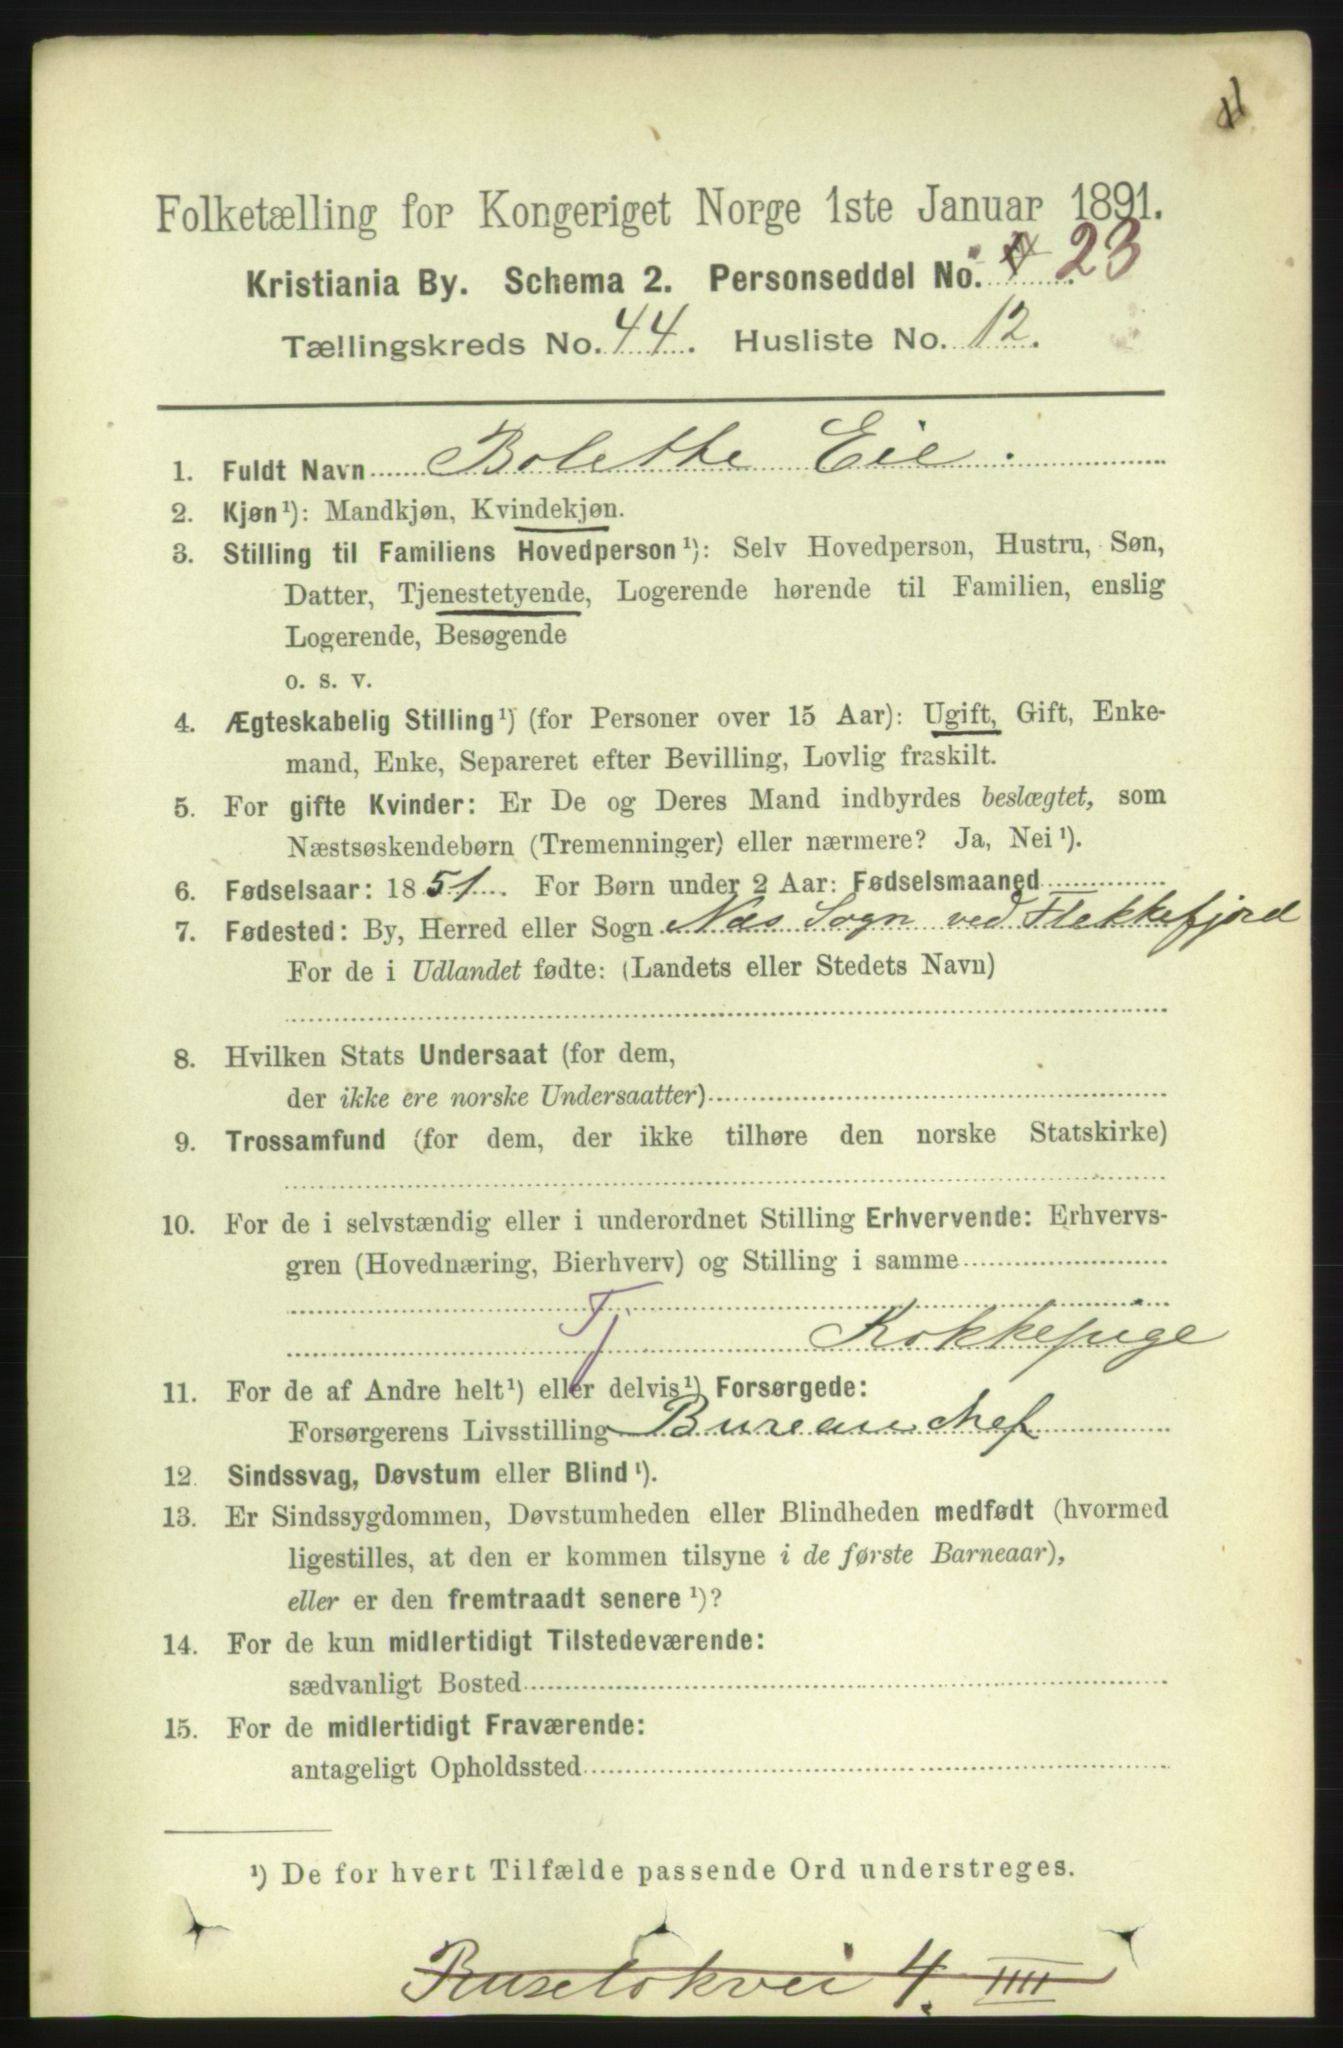 Folketælling for Kongeriget Norge 1ste Januar 1891.
Kristiania By. Schema 2. Personseddel No. 23
Tællingskreds No. 44. Husliste No. 12.
1. Fuldt Navn Bolethe Eie.
2. Kjøn¹): Mandkjøn, Kvindekjøn.
3. Stilling til Familiens Hovedperson¹): Selv Hovedperson, Hustru, Søn,
Datter, Tjenestetyende, Logerende hørende til Familien, enslig
Logerende, Besøgende
o. s. v.
4. Ægteskabelig Stilling¹) (for Personer over 15 Aar): Ugift, Gift, Enke-
mand, Enke, Separeret efter Bevilling, Lovlig fraskilt.
5. For gifte Kvinder: Er De og Deres Mand indbyrdes beslægtet, som
Næstsøskendebørn (Tremenninger) eller nærmere? Ja, Nei¹).
6. Fødselsaar: 1851. For Børn under 2 Aar: Fødselsmaaned
7. Fødested: By, Herred eller Sogn Næs Sogn ved Flekkefjord
For de i Udlandet fødte: (Landets eller Stedets Navn)
8. Hvilken Stats Undersaat (for dem,
der ikke ere norske Undersaatter)
9. Trossamfund (for dem, der ikke tilhøre den norske Statskirke)
10. For de i selvstændig eller i underordnet Stilling Erhvervende: Erhvervs-
gren (Hovednæring, Bierhverv) og Stilling i samme
Tj Kokkepige
11. For de af Andre helt¹) eller delvis¹) Forsørgede:
Forsørgerens Livsstilling Bureauchef
12. Sindssvag, Døvstum eller Blind¹).
13. Er Sindssygdommen, Døvstumheden eller Blindheden medfødt (hvormed
ligestilles, at den er kommen tilsyne i de første Barneaar),
eller er den fremtraadt senere¹)?
14. For de kun midlertidigt Tilstedeværende:
sædvanligt Bosted
15. For de midlertidigt Fraværende:
antageligt Opholdssted
¹) De for hvert Tilfælde passende Ord understreges.
Ruseløkvei 4. IIII